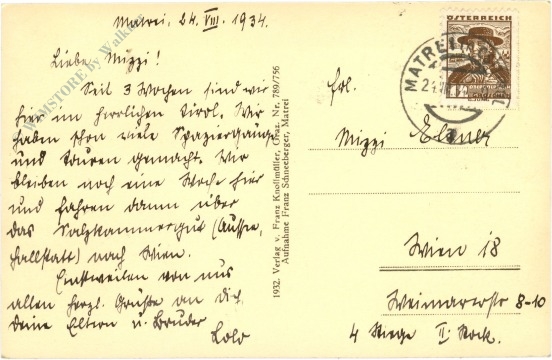 Matrei, 24. VIII. 1934.
Liebe Mizzi!
Seit 3 Wochen sind wir
hier im herrlichen Tirol. Wir
haben schon viele Spaziergänge
und Touren gemacht. Wir
bleiben noch eine Woche hier
und fahren dann über
das Salzkammergut (Aussee,
Hallstatt) nach Wien.
Einstweilen von uns
allen herzl. Grüße an dich,
deine Eltern u. Bruder
Lolo
1932. Verlag v. Franz Knollmüller, Graz. Nr. 789/756
Aufnahme Franz Schneeberger, Matrei
ÖSTERREICH
MATREI
Frl.
Mizzi Elzner
Wien 18
Weimarerstr 8-10
4 Stiege II. Stock.